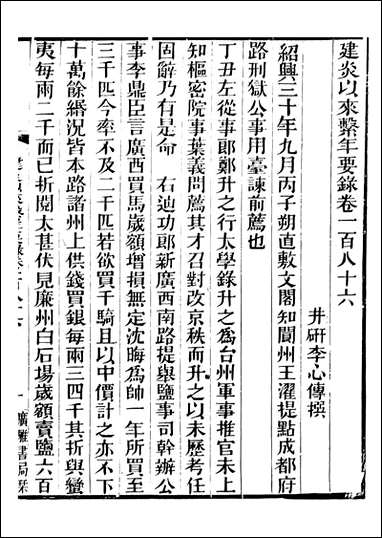 建炎以來繫年要錄卷一百八十六
井研李心傳撰
紹興三十年九月丙子朔直敷文閣知閬州王濯提點成都府
路刑獄公事用臺諫前薦也
丁丑左從事郎鄭升之行太學錄升之爲台州軍事推官未上
知樞密院事葉義問薦其才召對改京秩而升之以未歷考任
固辭乃有是命 右迪功郎新廣西南路提舉鹽事司幹辦公
事李鼎臣言廣西買馬歲額增損無定沈晦爲帥一年所買至
三千匹今率不及二千匹若欲買千騎且以中價計之亦不下
十萬餘緡況皆本路諸州上供錢買銀每兩三四千其折與蠻
夷每兩二千而已折閱太甚伏見廉州白石場歲額賣鹽六百
一 廣雅書局栞